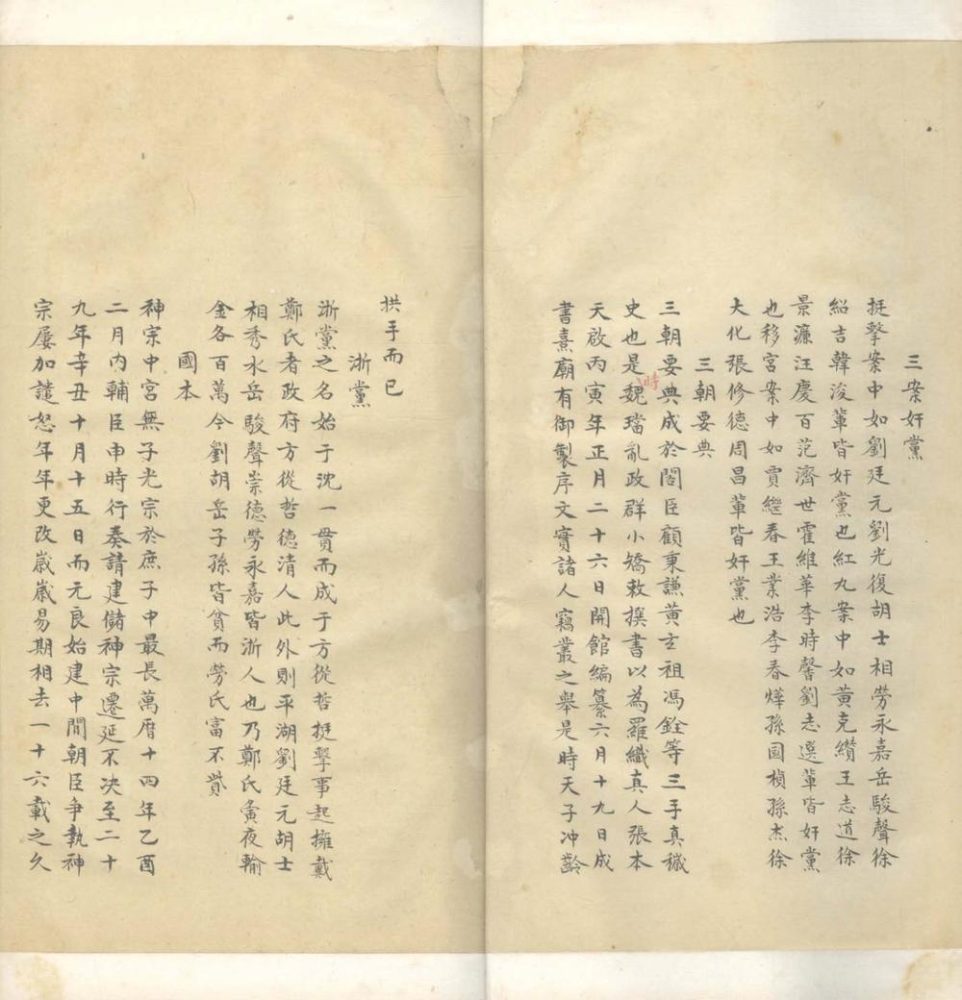 三案奸黨
挺擊案中如劉廷元劉光復胡士相勞永嘉岳駿聲徐
紹吉韓浚輩皆奸黨也紅丸案中如黃克纘王志道徐
景濂汪慶百范濟世霍維華李時馨劉志選輩皆奸黨
也移宮案中如賈繼春王業浩李春燁孫国楨孫杰徐
大化張修德周昌輩皆奸黨也
三朝要典
三朝要典成於閣臣顧秉謙黃立祖馮銓等三手真穢
史也是時魏璫亂政群小矯敕撰書以為羅織真人張本
天啟丙寅年正月二十六日開館編纂六月十九日成
書熹廟有御製序文實諸人竊叢之舉是時天子冲齡
拱手而已
浙黨
浙黨之名始于沈一貫而成于方從哲挺擊事起擁戴
鄭氏者政府方從哲德清人此外則平湖劉廷元胡士
相秀水岳駿聲崇德勞永嘉皆浙人也乃鄭氏夤夜輸
金各百萬今劉胡岳子孫皆貧而勞氏富不貲
國本
神宗中宮無子光宗於庶子中最長萬曆十四年乙酉
二月內輔臣申時行奏請建儲神宗遷延不决至二十
九年辛丑十月十五日而元良始建中間朝臣爭執神
宗屢加譴怒年年更改歲歲易期相去一十六載之久